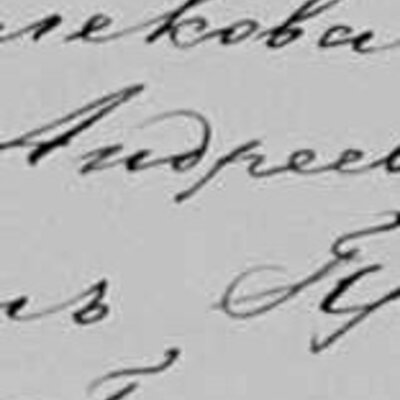 лекова
Андреев
лъ Гу